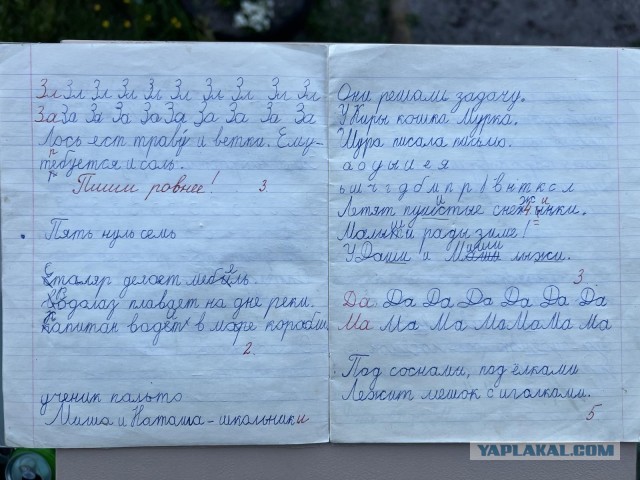 Зл Зл Зл Зл Зл Зл Зл Зл Зл Зл
За За За За За За За За За За
Лось ест траву и ветки. Ему
требуется и соль.
Пиши ровнее! 3.
Пять нуль семь
Столяр делает мебель.
Водолаз плавает на дне реки.
Капитан водет в море корабли.
2.
ученик пальто
Миша и Наташа - школьники
Они решали задачу.
У Киры кошка Мурка.
Шура писала письмо.
а о у ы и е я
ь ш ч г д б м п р l в н т к с л
Летят пушистые снежинки.
Малыши рады зиме!
У Даши и Миши лыжи.
3
Да Да Да Да Да Да Да
Ма Ма Ма Ма Ма Ма Ма
Под соснами, под ёлками
Лежит мешок с иголками.
5
YAPLAKAL.COM